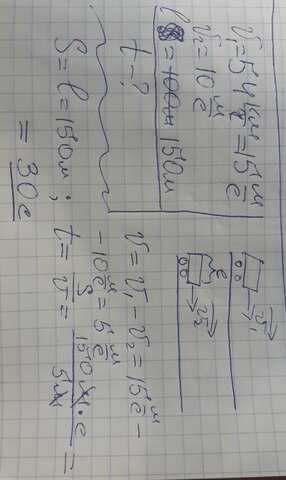 v₁ = 54 км/ч = 15 м/с
v₂ = 10 м/с
l = 150м
t - ?
v₁
l
v₂
v = v₁ - v₂ = 15 м/с -
- 10 м/с = 5 м/с
S = l = 150м ; t = S/v = 150 м·с/5м =
= 30с